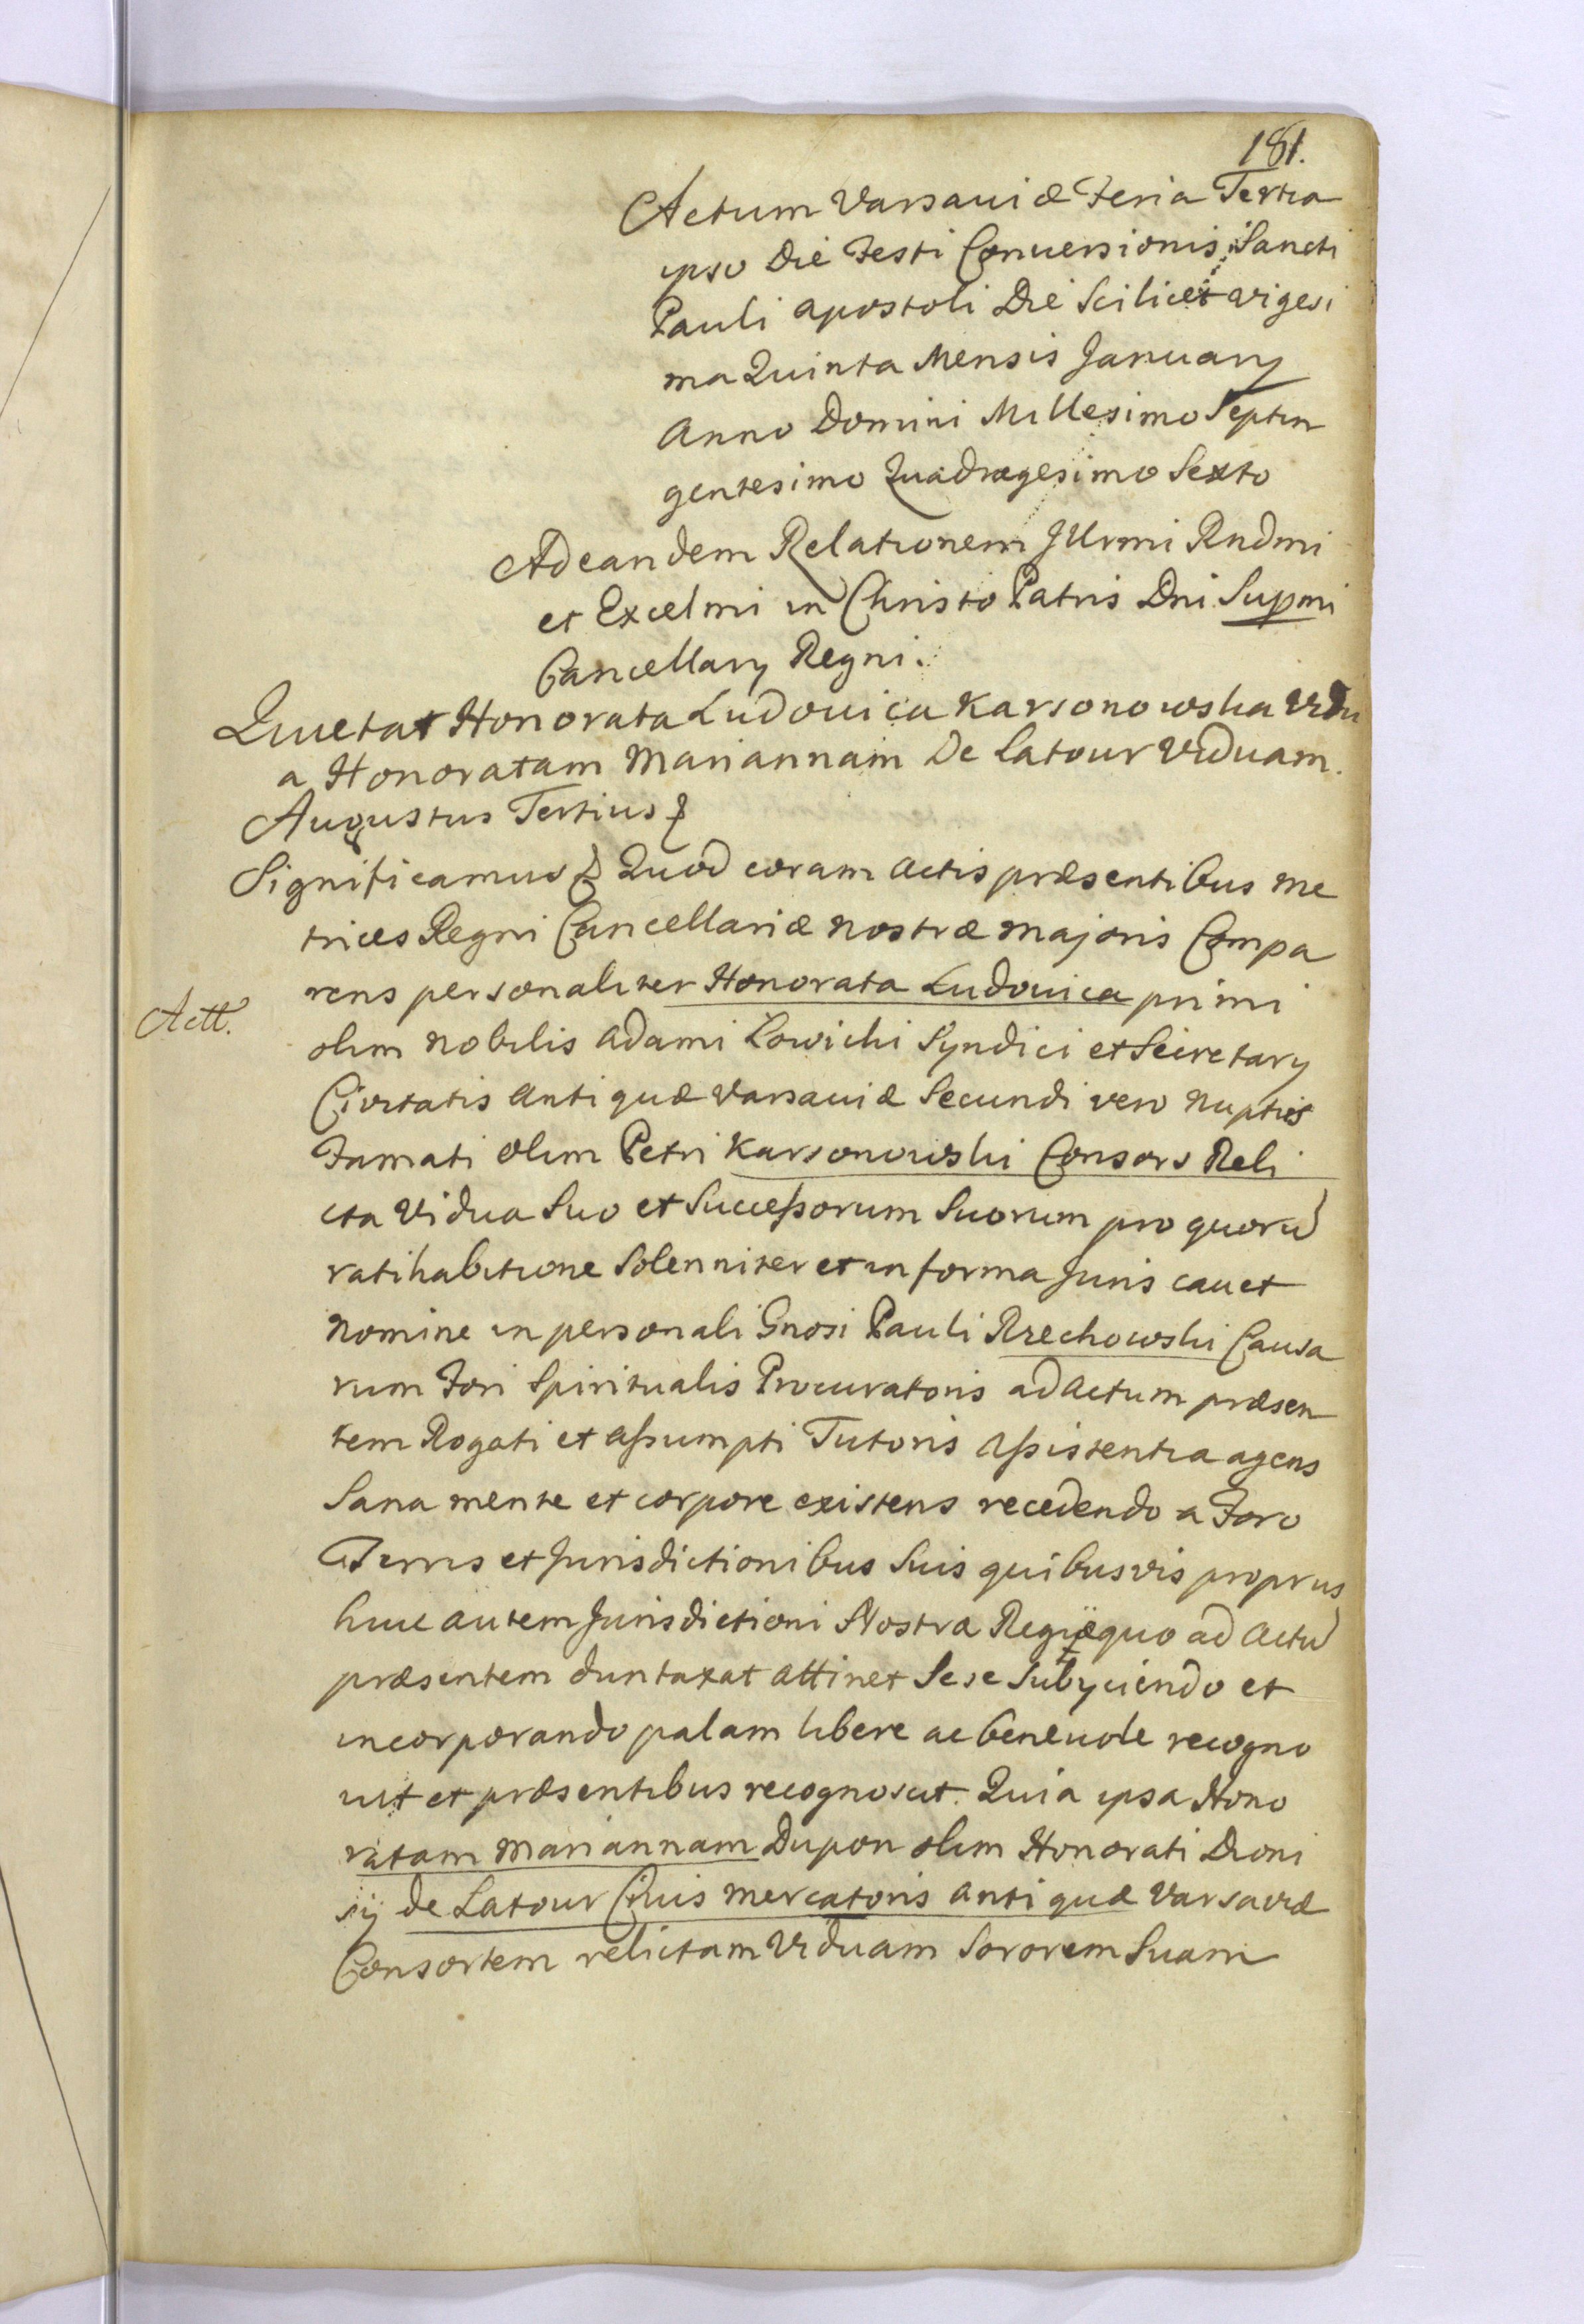 181.
Actum Varsauiæ Feria Tertia
ipso Die Festi Conuersionis Sancti
Pauli Apostoli Die Scilicet vigesi
ma Quinta Mensis January
Anno Domini Millesimo Septin
gentesimo Quadragesimo Sexto
Ad eandem Relationem Illrmi Rndmi
et Excelmi in Christo Patris Dni Supmi
Cancellary Regni.
Quietat Honorata Ludouica Karsonowska Vidu
a Honoratam Mariannam De Latour Viduam.
Augustus Tertius &
Significamus & Quod coram Actis præsentibus Me
trices Regni Cancellariæ Nostræ Majoris Compa
rens personaliter Honorata Ludouica primi
Actt.
olim Nobilis Adami Lowicki Syndici et Secretary
Ciuitatis Antiquæ Varsauiæ Secundi vero Nuptiis
Famati olim Petri Karsonowski Consors Reli
cta Vidua Suo et Successorum Suorum pro quorū
ratihabitione Solenniter et in forma Juris cauet
Nomine in personali Gnosi Pauli Rzechowski Causa
rum Fori Spiritualis Procuratoris ad Actum præsen
tem Rogati et Assumpti Tutoris Assistentia agens
Sana mente et corpore existens recedendo a Foro
Terris et Jurisdictionibus Suis quibusvis proprys
huic autem Jurisdictioni Nostræ Regiæ quo ad Actū
præsentem duntaxat attinet Sese Subyciendo et
incorporando palam libere ac beneuole recogno
uit et præsentibus recognoscit. Quia ipsa Hono
ratam Mariannam Dupon olim Honorati Dioni
sÿ de Latour Ciuis Mercatoris Antiquæ Varsaviæ
Consortem relictam Viduam Sororem Suam